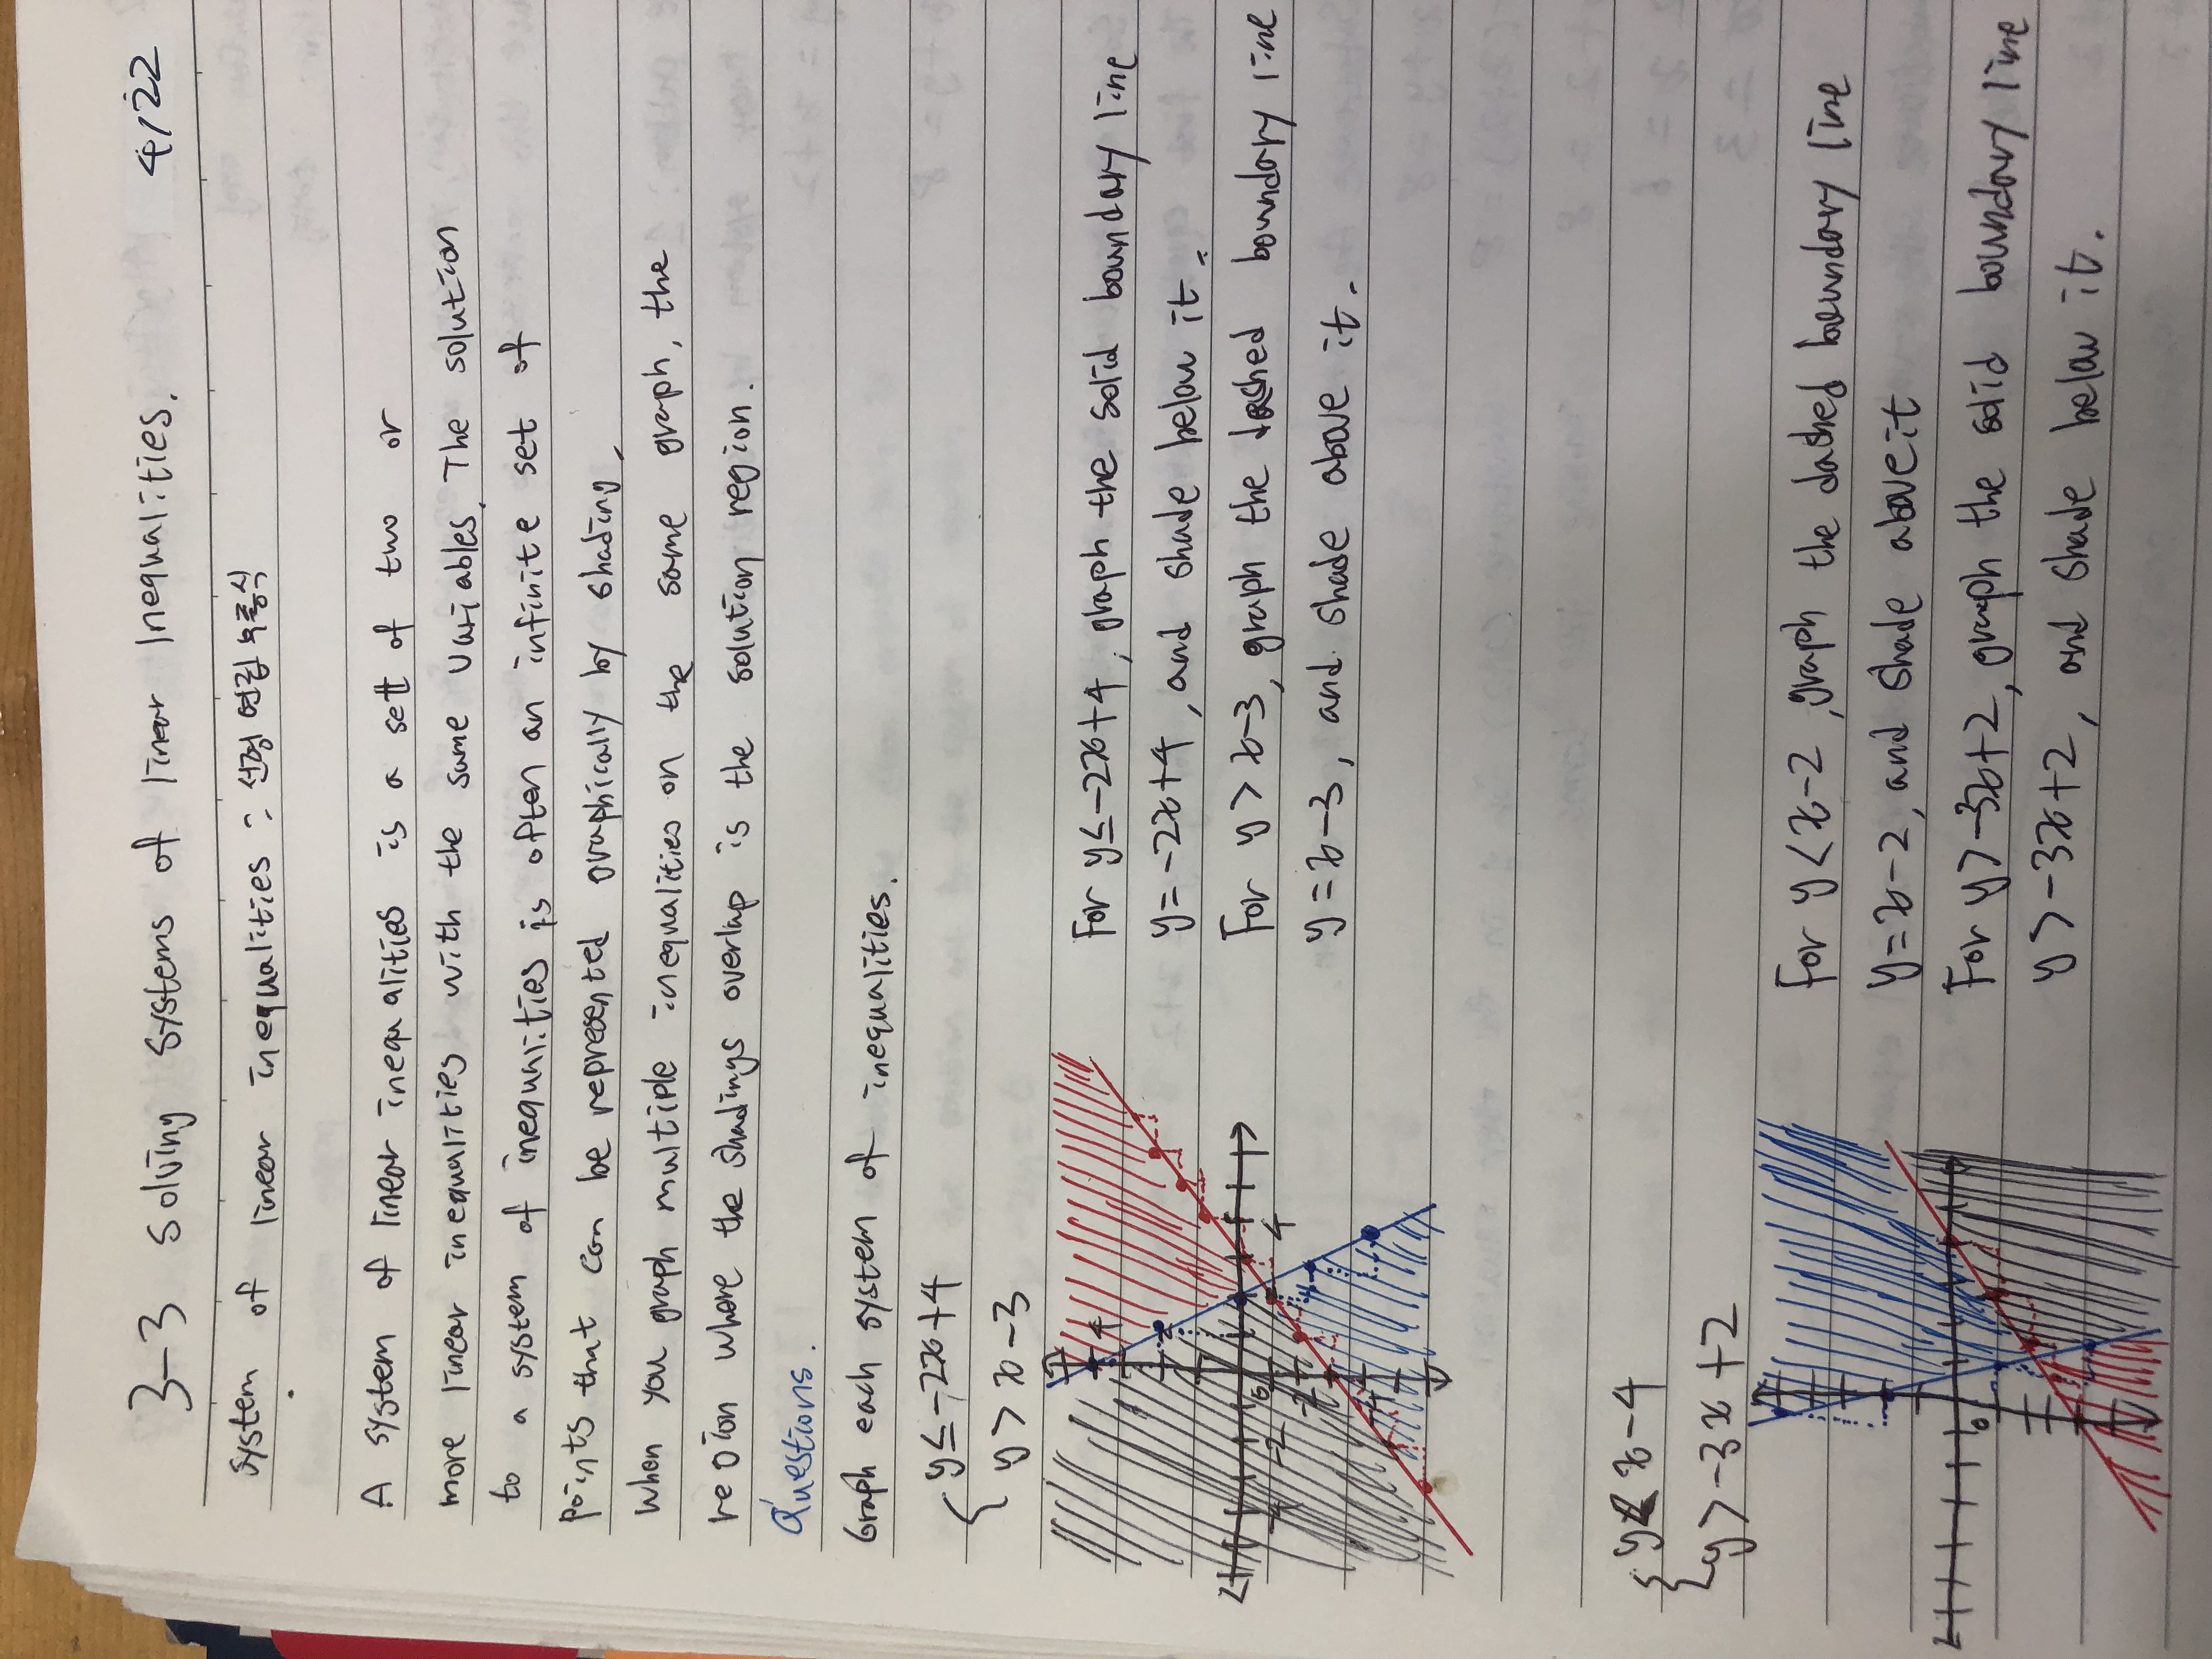 3-3 Solving Systems of linear Inequalities. 4/22
System of linear inequalities : 선형 연립 부등식
A system of linear inequalities is a set of two or
more linear inequalities with the same variables. The solution
to a system of inequalities is often an infinite set of
points that can be represented graphically by shading.
When you graph multiple inequalities on the same graph, the
region where the shadings overlap is the solution region.
Questions.
Graph each system of inequalities.
{ y≤-2x+4
y>x-3
For y≤-2x+4, graph the solid boundary line
y=-2x+4, and shade below it.
For y>x-3, graph the dashed boundary line
y=x-3, and shade above it.
4
2
0
-4
-2
4
-2
-4
{ y<x-4
y>-3x+2
For y<x-2, graph the dashed boundary line
y=x-2, and shade above it
For y>-3x+2, graph the solid boundary line
y>-3x+2, and shade below it.
0